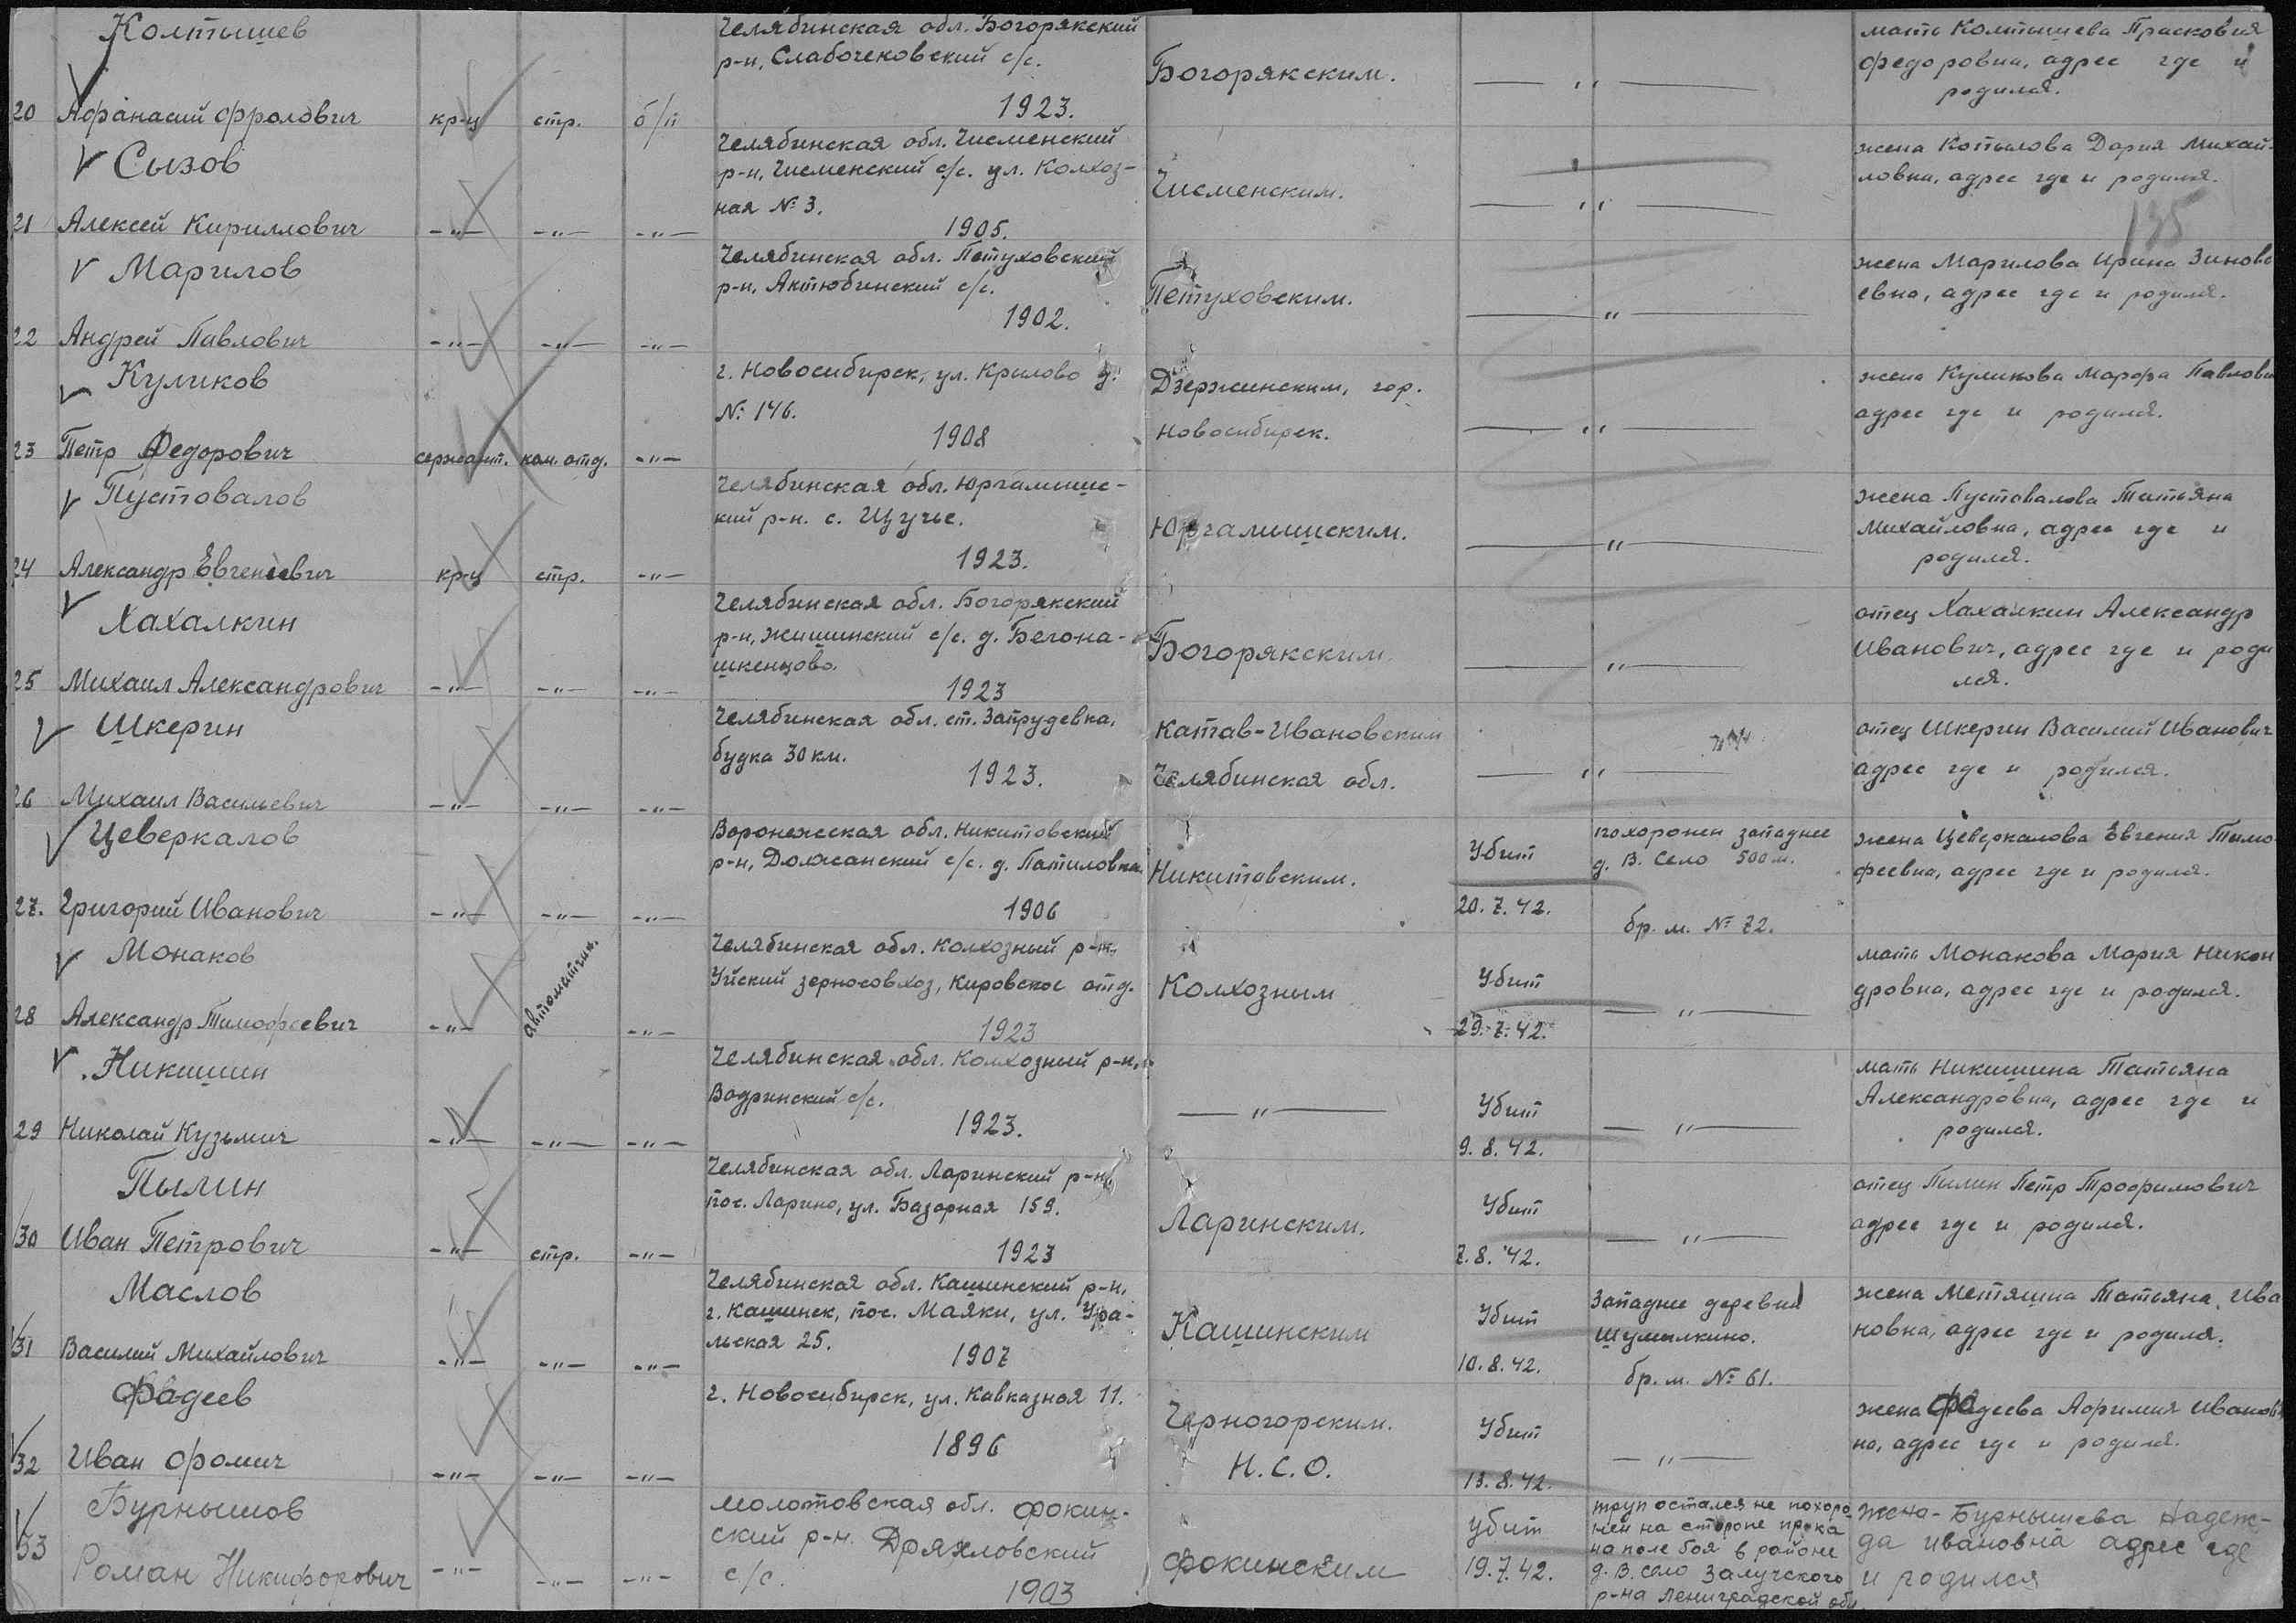 Колтышев
Челябинская обл. Богорякский
р-н, Слабочековский с/с.
Богорякским.
— " —
мать Колтышева Прасковия
федоровна, адрес где и
родился.
20 Афанасий Фролович кр-ц стр. б/п 1923.
Сызов
Челябинская обл. Чисменский
р-н, Чисменский с/с. ул. Колхоз-
ная № 3.
Чисменским.
— " —
жена Копылова Дария Михай-
ловна, адрес где и родился.
135
21 Алексей Кириллович -"- -"- -"- 1905.
Марилов
Челябинская обл. Петуховский
р-н, Актюбинский с/с.
Петуховским.
— " —
жена Марилова Ирина Зиновь
евна, адрес где и родился.
22 Андрей Павлович -"- -"- -"- 1902.
Куликов
г. Новосибирск, ул. Крилова д.
№ 146.
Дзержинским, гор.
Новосибирск.
— " —
жена Куликова Марфа Павловн
адрес где и родился.
23 Петр Федорович сержант. ком. отд. -"- 1908
Пустовалов
Челябинская обл. Юргамышс-
кий р-н. с. Щучье.
Юргамышским.
— " —
жена Пустовалова Татьяна
Михайловна, адрес где и
родился.
24 Александр Евгеневич кр-ц стр. -"- 1923.
Хахалкин
Челябинская обл. Богорякский
р-н, жишинский с/с. д. Белона-
шкенцово.
Богорякским
— " —
отец Хахалкин Александр
Иванович, адрес где и роди
лся.
25 Михаил Александрович -"- -"- -"- 1923
Шкерин
Челябинская обл. ст. Запрудевка,
будка 30 км.
Катав-Ивановским
Челябинская обл.
— " —
отец Шкерин Василий Иванович
адрес где и родился.
26 Михаил Васильевич -"- -"- -"- 1923.
Цеверкалов
Воронежская обл. Никитовский
р-н, Должанский с/с. д. Патиловка.
Никитовским.
Убит
20.7.42.
похоронен западнее
д. В. Село 500 м.
бр. м. № 72.
жена Цеверкалова Евгения Тимо-
феевна, адрес где и родился.
27. Григорий Иванович -"- -"- -"- 1906
Монаков
Челябинская обл. Колхозный р-н,
Уйский зерносовхоз, Кировское отд.
Колхозным
Убит
29.7.42.
— " —
мать Монакова Мария Никон
дровна, адрес где и родился.
28 Александр Тимофеевич -"- автоматчик. -"- 1923
Никишин
Челябинская обл. Колхозный р-н,
Водринский с/с.
— " —
Убит
9.8.42.
— " —
мать Никишина Татьяна
Александровна, адрес где и
родился.
29 Николай Кузьмич -"- -"- -"- 1923.
Пылин
Челябинская обл. Ларинский р-н,
пос. Ларино, ул. Базарная 159.
Ларинским.
Убит
7.8.42.
— " —
отец Пылин Петр Трофимович
адрес где и родился.
30 Иван Петрович -"- стр. -"- 1923
Маслов
Челябинская обл. Кашинский р-н,
г. Кашинск, пос. Маяки, ул. Ура-
льская 25.
Кашинским
Убит
10.8.42.
Западнее деревни
Шумилкино.
бр. м. № 61.
жена Метяшина Татьяна Ива
новна, адрес где и родился.
31 Василий Михайлович -"- -"- -"- 1907
Фадеев
г. Новосибирск, ул. Кавказная 11.
Черногорским.
Н.С.О.
Убит
13.8.42.
— " —
жена Фадеева Афимия Иванов
на, адрес где и родился.
32 Иван Фомич -"- -"- -"- 1896
Бурнышов
Молотовская обл. Фокин-
ский р-н. Дряхловский
с/с.
Фокинским
убит
19.7.42.
труп остался не похоро
нен на стороне пр-ка
на поле боя в районе
д. В. село Залучского
р-на Ленинградской обл
жена - Бурнышева Надеж-
да ивановна адрес где
и родился
33 Роман Никифорович -"- -"- -"- 1903